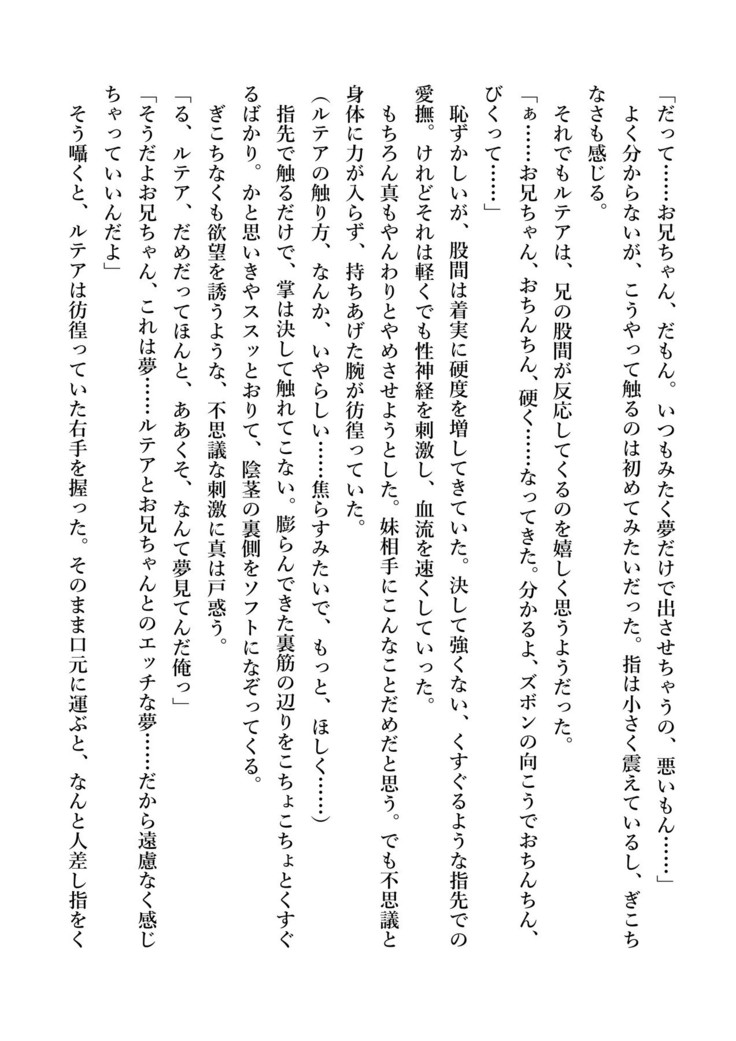 「だって……お兄ちゃん、だもん。いつもみたく夢だけで出させちゃうの、悪いもん……」
よく分からないが、こうやって触るのは初めてみたいだった。指は小さく震えているし、ぎこち
なさも感じる。
それでもルテアは、兄の股間が反応してくるのを嬉しく思うようだった。
「ぁ……お兄ちゃん、おちんちん、硬く……なってきた。分かるよ、ズボンの向こうでおちんちん、
びくって……」
恥ずかしいが、股間は着実に硬度を増してきていた。決して強くない、くすぐるような指先での
愛撫。けれどそれは軽くでも性神経を刺激し、血流を速くしていった。
もちろん真もやんわりとやめさせようとした。妹相手にこんなことだめだと思う。でも不思議と
身体に力が入らず、持ちあげた腕が彷徨っていた。
(ルテアの触り方、なんか、いやらしい……焦らすみたいで、もっと、ほしく……)
指先で触るだけで、掌は決して触れてこない。膨らんできた裏筋の辺りをこちょこちょとくすぐ
るばかり。かと思いきやススッとおりて、陰茎の裏側をソフトになぞってくる。
ぎこちなくも欲望を誘うような、不思議な刺激に真は戸惑う。
「る、ルテア、だめだってほんと、ああくそ、なんて夢見てんだ俺っ」
「そうだよお兄ちゃん、これは夢……ルテアとお兄ちゃんとのエッチな夢……だから遠慮なく感じ
ちゃっていいんだよ」
そう囁くと、ルテアは彷徨っていた右手を握った。そのまま口元に運ぶと、なんと人差し指をく